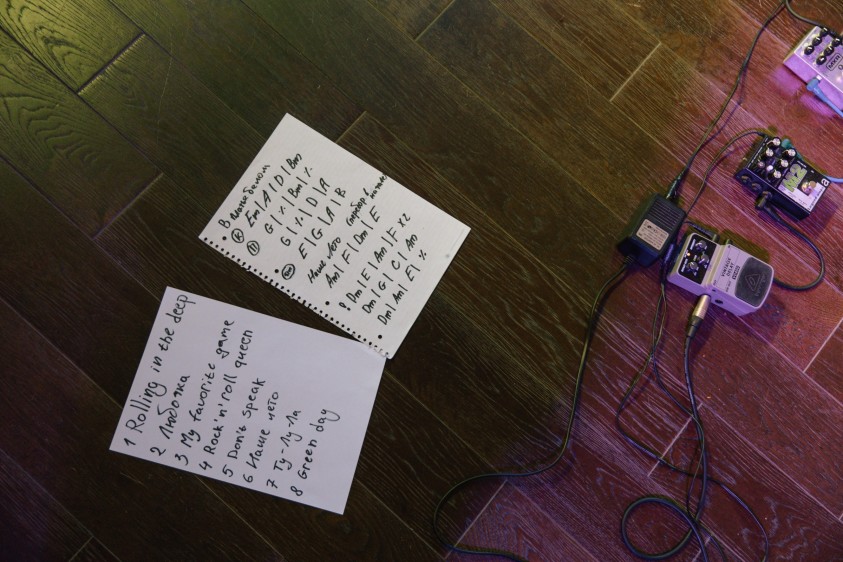 В платье белом
Em | A | D | Bm
G | % | Bm | %
G | % | D | A
E | G | A | B
Наше лето (перебор в начале
Am | F | Dm | E
Dm | E | Am | F x2
Dm | G | C | Am
Dm | Am | E | %
1 Rolling in the deep
2 Любочка
3 My favorite game
4 Rock'n'roll queen
5 Don't speak
6 Наше лето
7 Ту-Лу-Ла
8 Green day
MXR
VINTAGE
DELAY